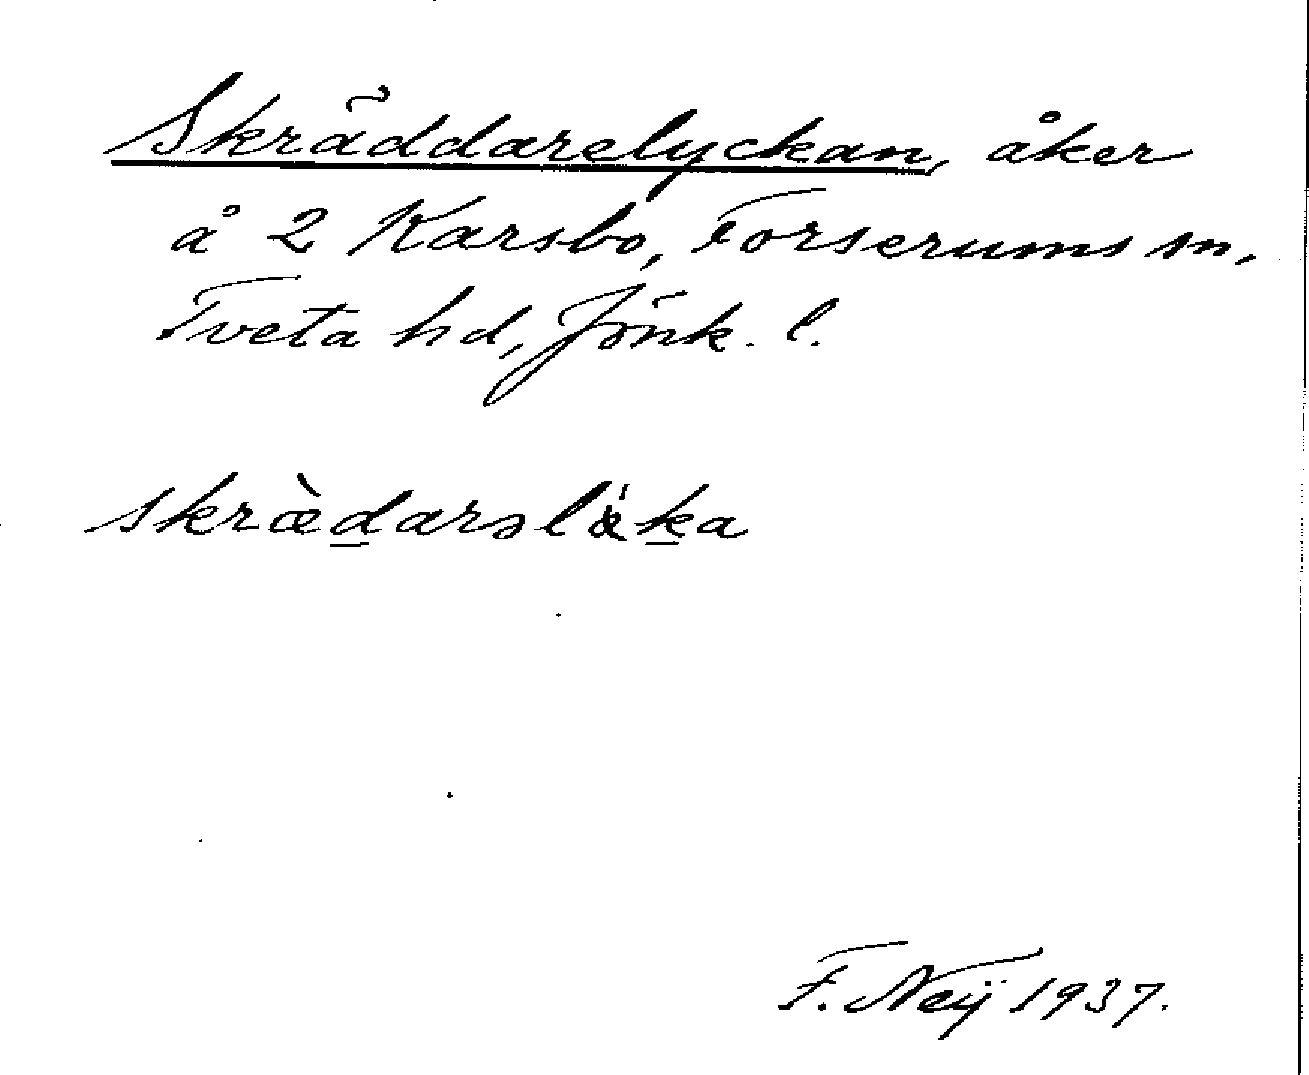 Skräddarelyckan, åker
å 2 Karsbo, Forserums sn,
Tveta hd, Jönk. l.
skræ̀d̲arəlǻk̲a
F. Neÿ 1937.